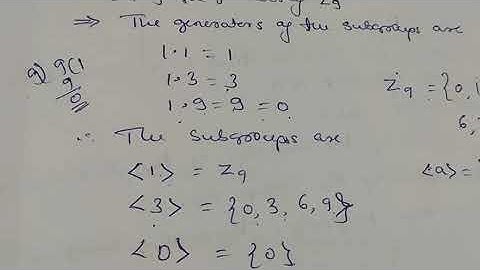 ⇒ The generators of the subgroups are
1·1 = 1
9) 9 (1
9
0
1·3 = 3
1·9 = 9 = 0
Z9 = {0, 1
6,
∴ The subgroups are
<1> = Z9
<a> =
<3> = {0, 3, 6, 9}
<0> = {0}